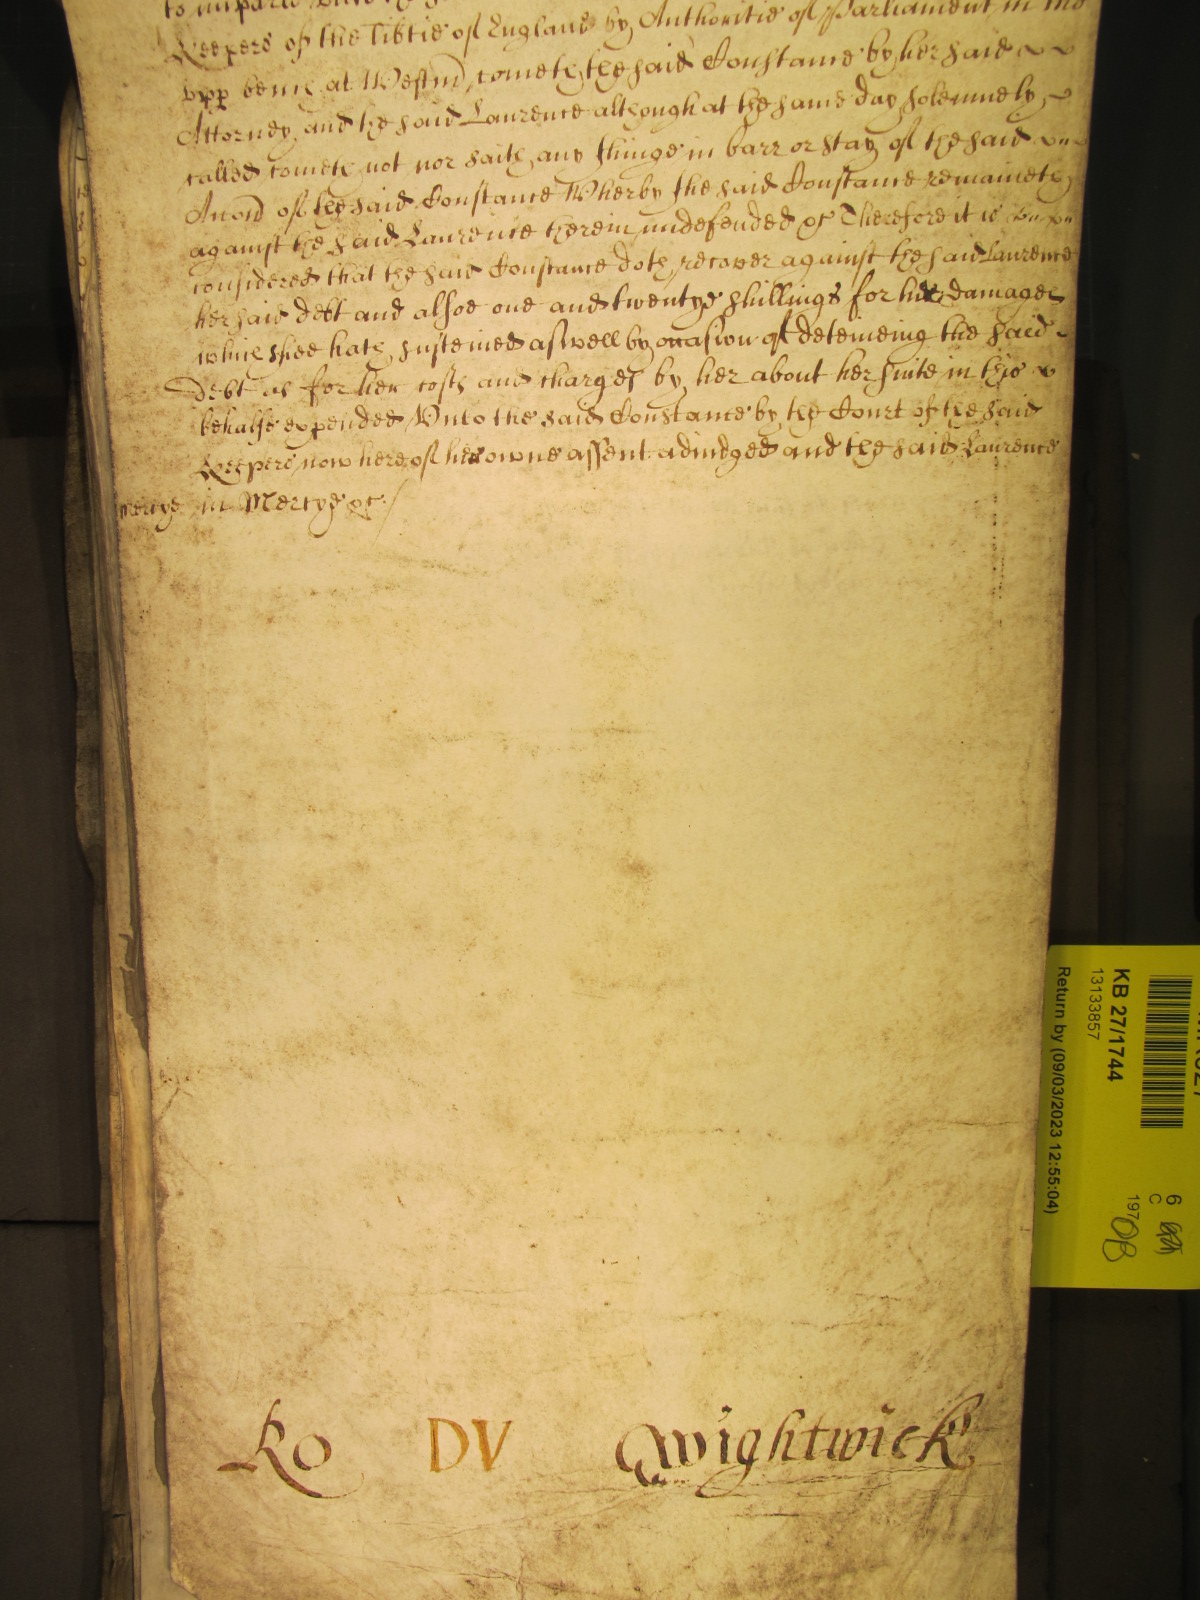 to imparle
Keepers of the libtie of England by Authoritie of Parliament in the
vpp bench at Westm cometh the said Constance by her said
Attorney and the said Laurence although at the same day solemnely
called cometh not nor saith any thinge in barr or stay of the said
Accon of the said Constance Wherby the said Constance remaineth
against the said Laurence therein undefended &c Therefore it is
considered that the said Constance doth recover against the said Laurence
her said debt and alsoe one and twentye shillings for her damages
which shee hath susteined aswell by occasion of deteineing the said
debt as for her costs and charges by her about her suite in this
behalfe expended Vnto the said Constance by the Court of the said
Keepers now here of her owne assent adiudged and the said Laurence
mercye in Mercye &c
Ro DV Wightwick
KB 27/1744
13133857
Return by (09/03/2023 12:55:04)
6
C
197